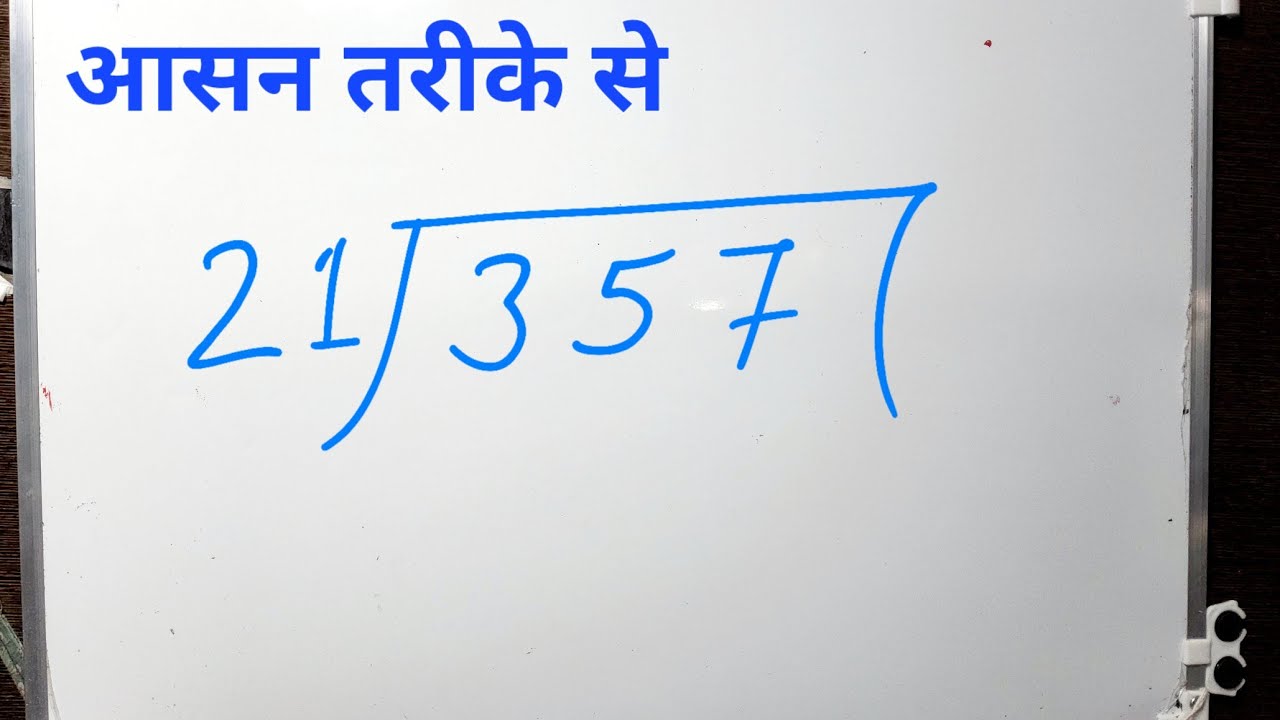 आसन तरीके से
21)357(